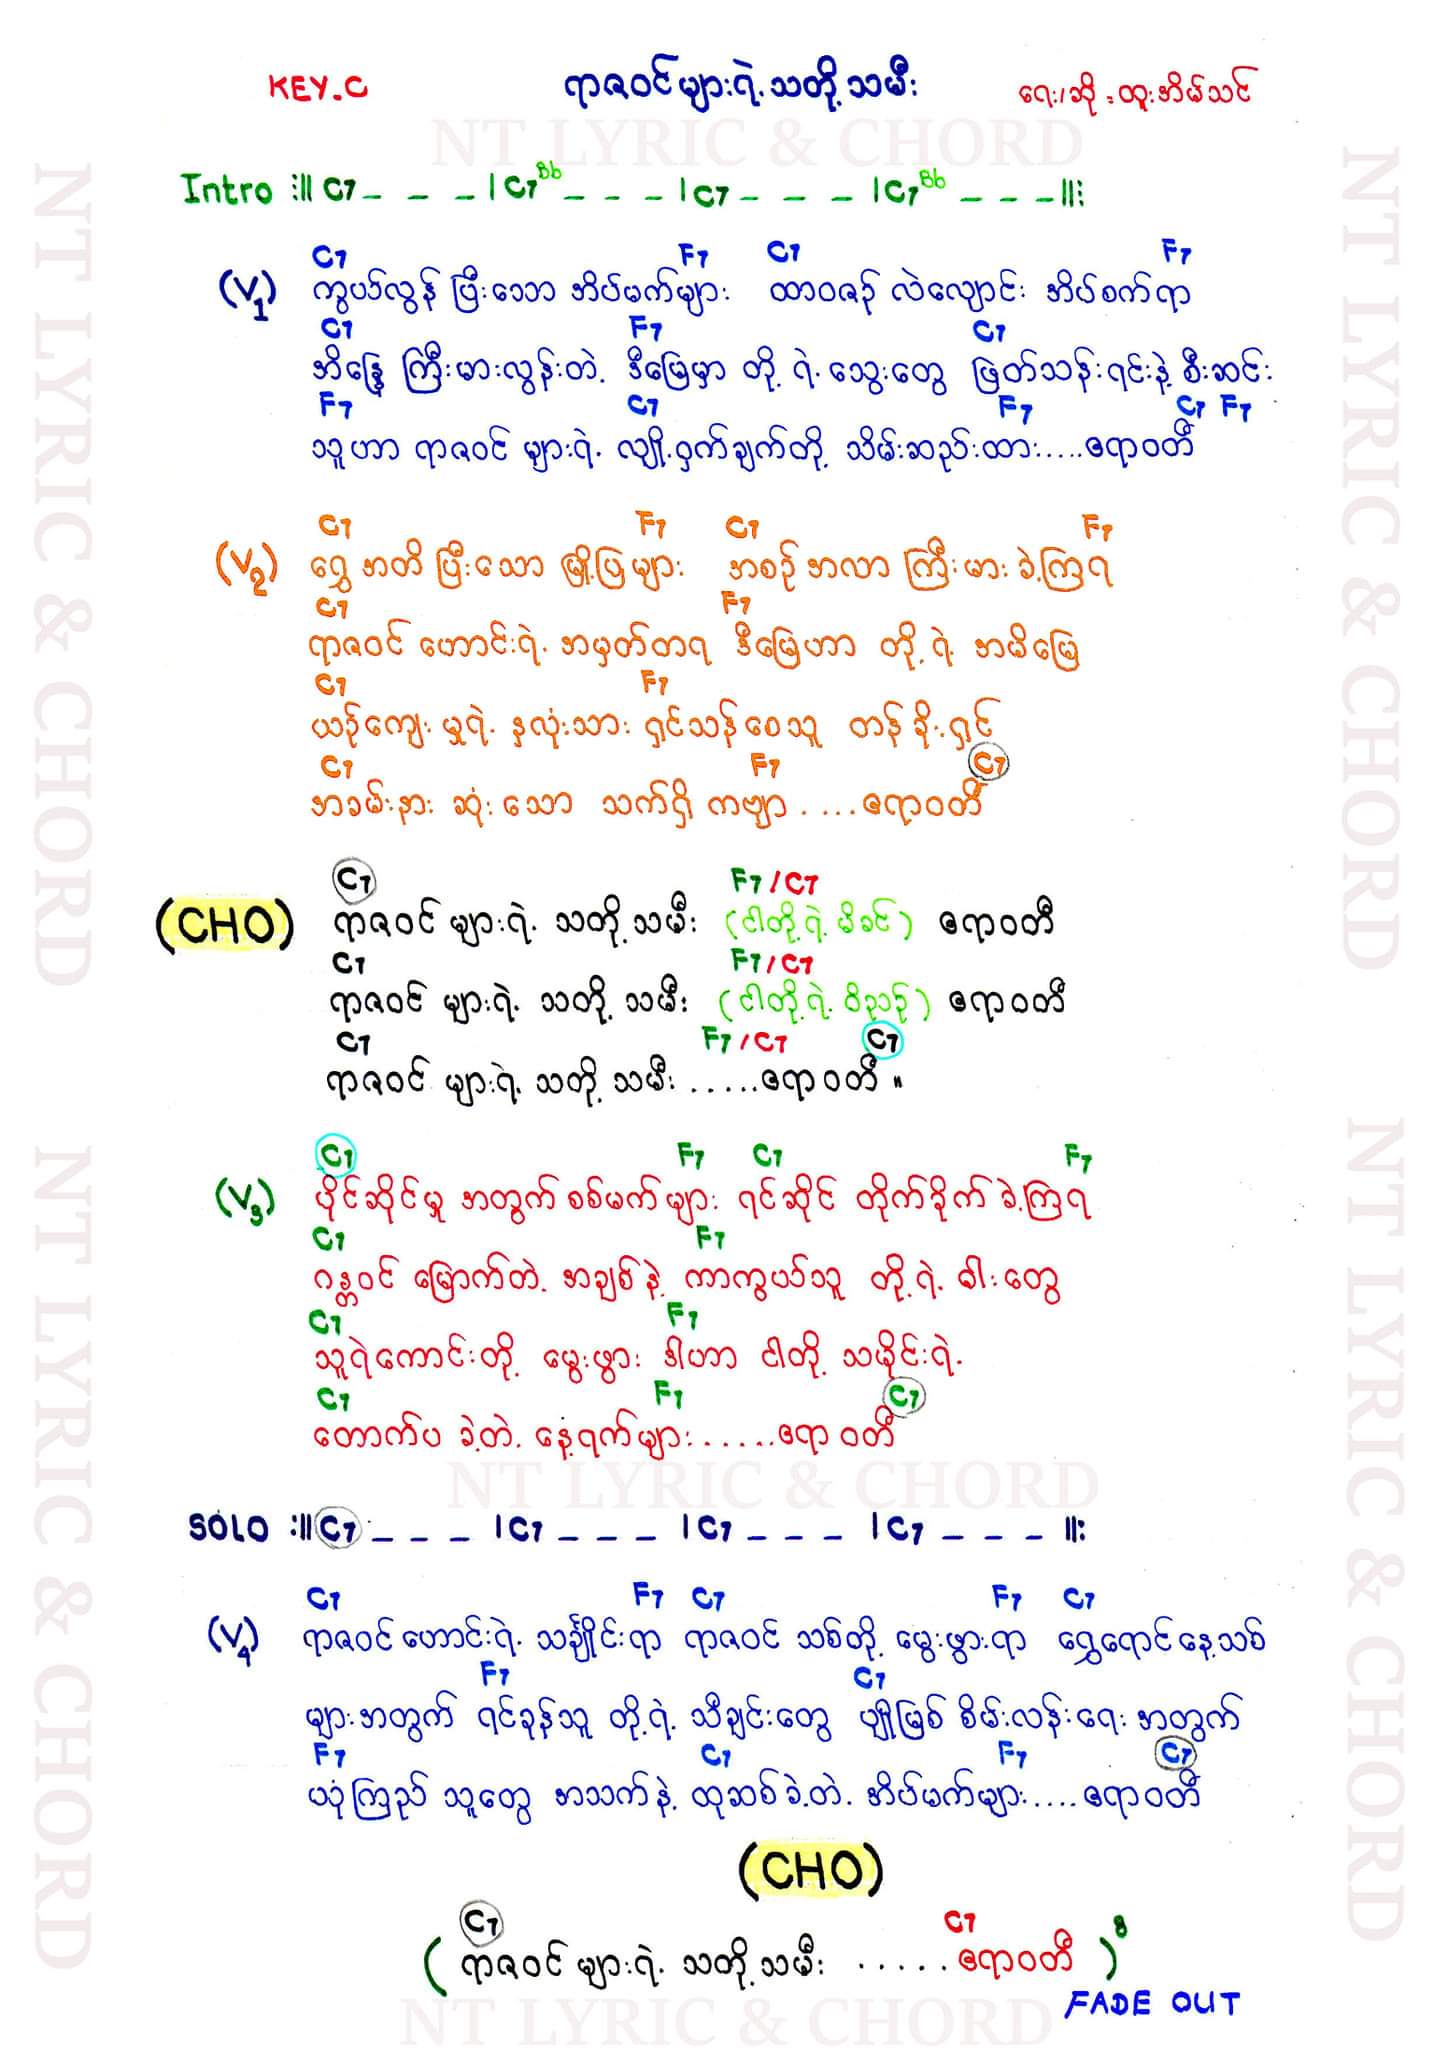 KEY-C ရာဇဝင်များရဲ့သတို့သမီး ရေး/ဆို - ထူးအိမ်သင်
NT LYRIC & CHORD
Intro :|| C7 _ _ _ | C7 Bb _ _ _ | C7 _ _ _ | C7 Bb _ _ _ ||:
C7 F7 C7 F7
(V1) ကွယ်လွန် ပြီးသော အိပ်မက်များ ထာဝစဉ် လဲလျောင်း အိပ်စက်ရာ
C7 F7 C7
အိန္ဒြေ ကြီးမားလွန်းတဲ့ ဒီမြေမှာ တို့ ရဲ့ သွေးတွေ ဖြတ်သန်းရင်းနဲ့ စီးဆင်း
F7 C7 F7 C7 F7
သူဟာ ရာဇဝင် များရဲ့ လျှို့ဝှက်ချက်တို့ သိမ်းဆည်းထား.....ဧရာဝတီ
C7 F7 C7 F7
(V2) ရွှေ အတိ ပြီးသော မြို့ပြများ အစဉ် အလာ ကြီးမား ခဲ့ကြရ
C7 F7
ရာဇဝင် ဟောင်းရဲ့ အမှတ်တရ ဒီမြေဟာ တို့ ရဲ့ အမိမြေ
C7 F7
ယဉ်ကျေး မှုရဲ့ နှလုံးသား ရှင်သန်စေသူ တန်ခိုးရှင်
C7 F7 C7
အခမ်းနား ဆုံးသော သက်ရှိ ကဗျာ ....ဧရာဝတီ
C7 F7/C7
(CHO) ရာဇဝင် များရဲ့ သတို့သမီး (ငါတို့ရဲ့ မိခင်) ဧရာဝတီ
C7 F7/C7
ရာဇဝင် များရဲ့ သတို့ သမီး (ငါတို့ရဲ့ ဝိညာဉ်) ဧရာဝတီ
C7 F7/C7 C7
ရာဇဝင် များရဲ့ သတို့ သမီး .....ဧရာဝတီ ။
C7 F7 C7 F7
(V3) ပိုင်ဆိုင်မှု အတွက် စစ်မက်များ ရင်ဆိုင် တိုက်ခိုက် ခဲ့ကြရ
C7 F7
ဂန္တဝင် မြောက်တဲ့ အချစ်နဲ့ ကာကွယ်သူ တို့ရဲ့ ဓါးတွေ
C7 F7
သူရဲကောင်းတို့ မွေးဖွား ဒါဟာ ငါတို့ သမိုင်းရဲ့
C7 F7 C7
တောက်ပ ခဲ့တဲ့ နေ့ရက်များ......ဧရာဝတီ
NT LYRIC & CHORD
SOLO :|| C7 _ _ _ | C7 _ _ _ | C7 _ _ _ | C7 _ _ _ ||:
C7 F7 C7 F7 C7
(V4) ရာဇဝင် ဟောင်းရဲ့ သင်္ချိုင်းရာ ရာဇဝင် သစ်တို့ မွေးဖွားရာ ရွှေရောင်နေ့သစ်
F7 C7
များအတွက် ရင်ခုန်သူ တို့ရဲ့ သီချင်းတွေ ပျိုမြစ် စိမ်းလန်းရေး အတွက်
F7 C7 F7 C7
ယုံကြည် သူတွေ အသက်နဲ့ ထုဆစ်ခဲ့တဲ့ အိပ်မက်များ....ဧရာဝတီ
(CHO)
C7 C7
( ရာဇဝင် များရဲ့ သတို့သမီး .....ဧရာဝတီ )8
FADE OUT
NT LYRIC & CHORD
NT LYRIC & CHORD
NT LYRIC & CHORD
NT LYRIC & CHORD
NT LYRIC & CHORD